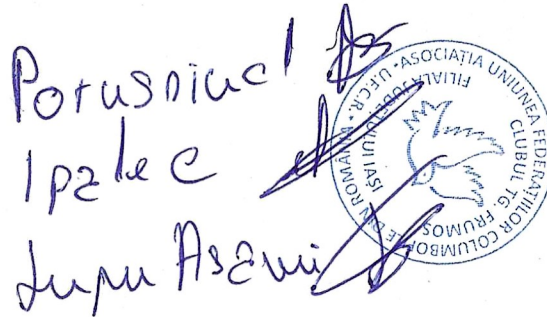 Porusniuc I
Ipate C
Lupu Asavei
ASOCIAȚIA UNIUNEA FEDERAȚIILOR COLUMBOFILE DIN ROMÂNIA • U.F.C.R. •
FILIALA JUDEȚULUI IAȘI
CLUBUL TG. FRUMOS